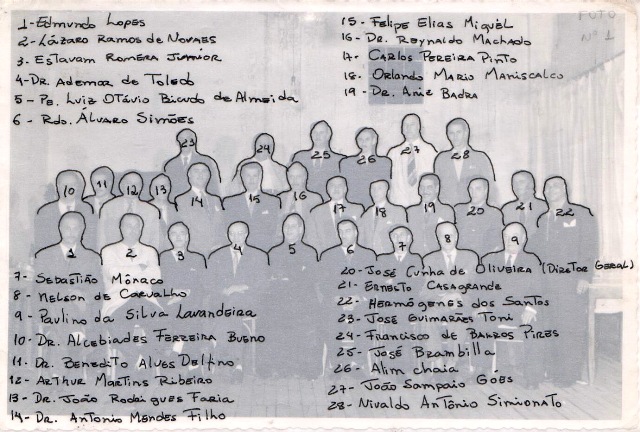 1-Edmundo Lopes
2-Lázaro Ramos de Novaes
3-Estavam Romera Junior
4-Dr. Ademar de Toledo
5-Pe. Luiz Otávio Bicudo de Almeida
6-Rdo. Álvaro Simões
15-Felipe Elias Miguel
16-Dr. Reynaldo Machado
17-Carlos Pereira Pinto
18-Orlando Mario Maniscalco
19-Dr. Aniz Badra
FOTO
Nº 1
23 24 25 26 27 28
10 11 12 13 14 15 16 17 18 19 20 21 22
1 2 3 4 5 6 7 8 9
7-Sebastião Mônaco
8-Nelson de Carvalho
9-Paulino da Silva Lavandeira
10-Dr. Alcebíades Ferreira Bueno
11-Dr. Benedito Alves Delfino
12-Arthur Martins Ribeiro
13-Dr. João Rodrigues Faria
14-Dr. Antonio Mendes Filho
20-José Cunha de Oliveira (Diretor Geral)
21-Ernesto Casagrande
22-Hermógenes dos Santos
23-José Guimarães Toni
24-Francisco de Barros Pires
25-José Brambilla
26-Alim chaia
27-João Sampaio Góes
28-Nivaldo Antônio Simionato